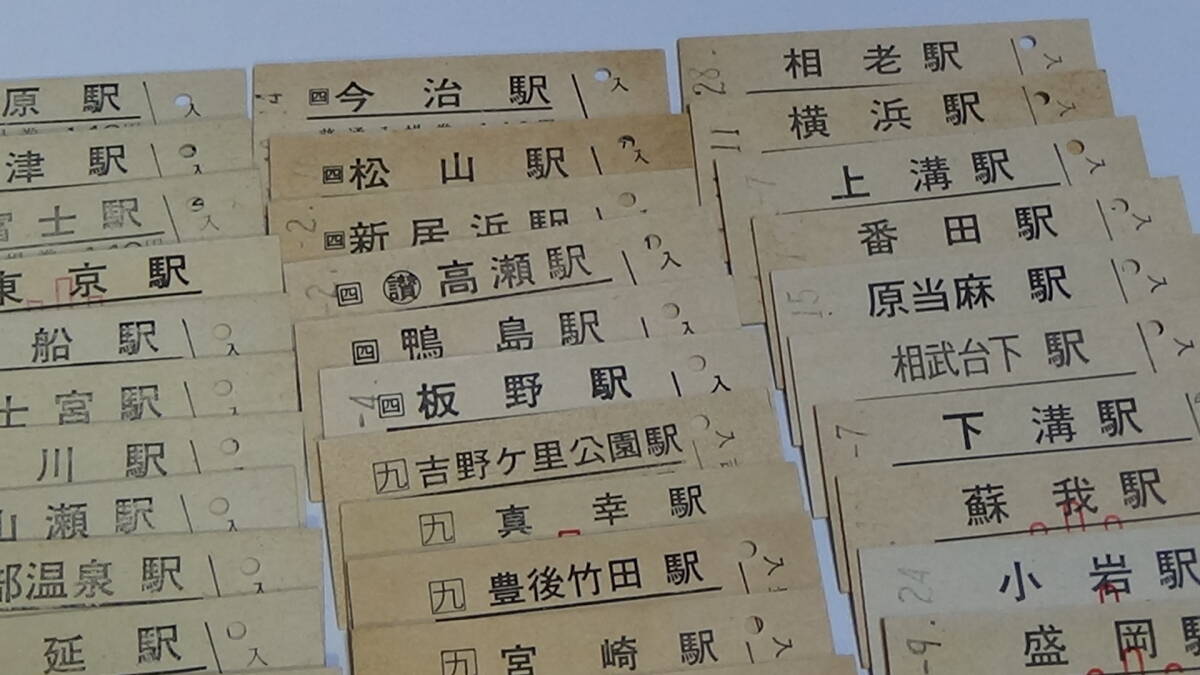 原 駅 入
津 駅 入
富士駅 入
東京駅
船 駅 入
士宮駅
川 駅 入
山瀬駅
部温泉駅 入
延 駅 入
四 今治駅 入
四 松山駅 入
四 新居浜駅
四 讃 高瀬駅 入
四 鴨島駅 入
四 板野駅 入
九 吉野ケ里公園駅 入
九 真幸駅
九 豊後竹田駅 入
九 宮崎駅 入
28- 相老駅 入
11 横浜駅 入
-7 上溝駅 入
番田駅 入
15 原当麻駅 入
相武台下駅 入
-7 下溝駅
蘇我駅
24 小岩駅
-9. 盛岡駅